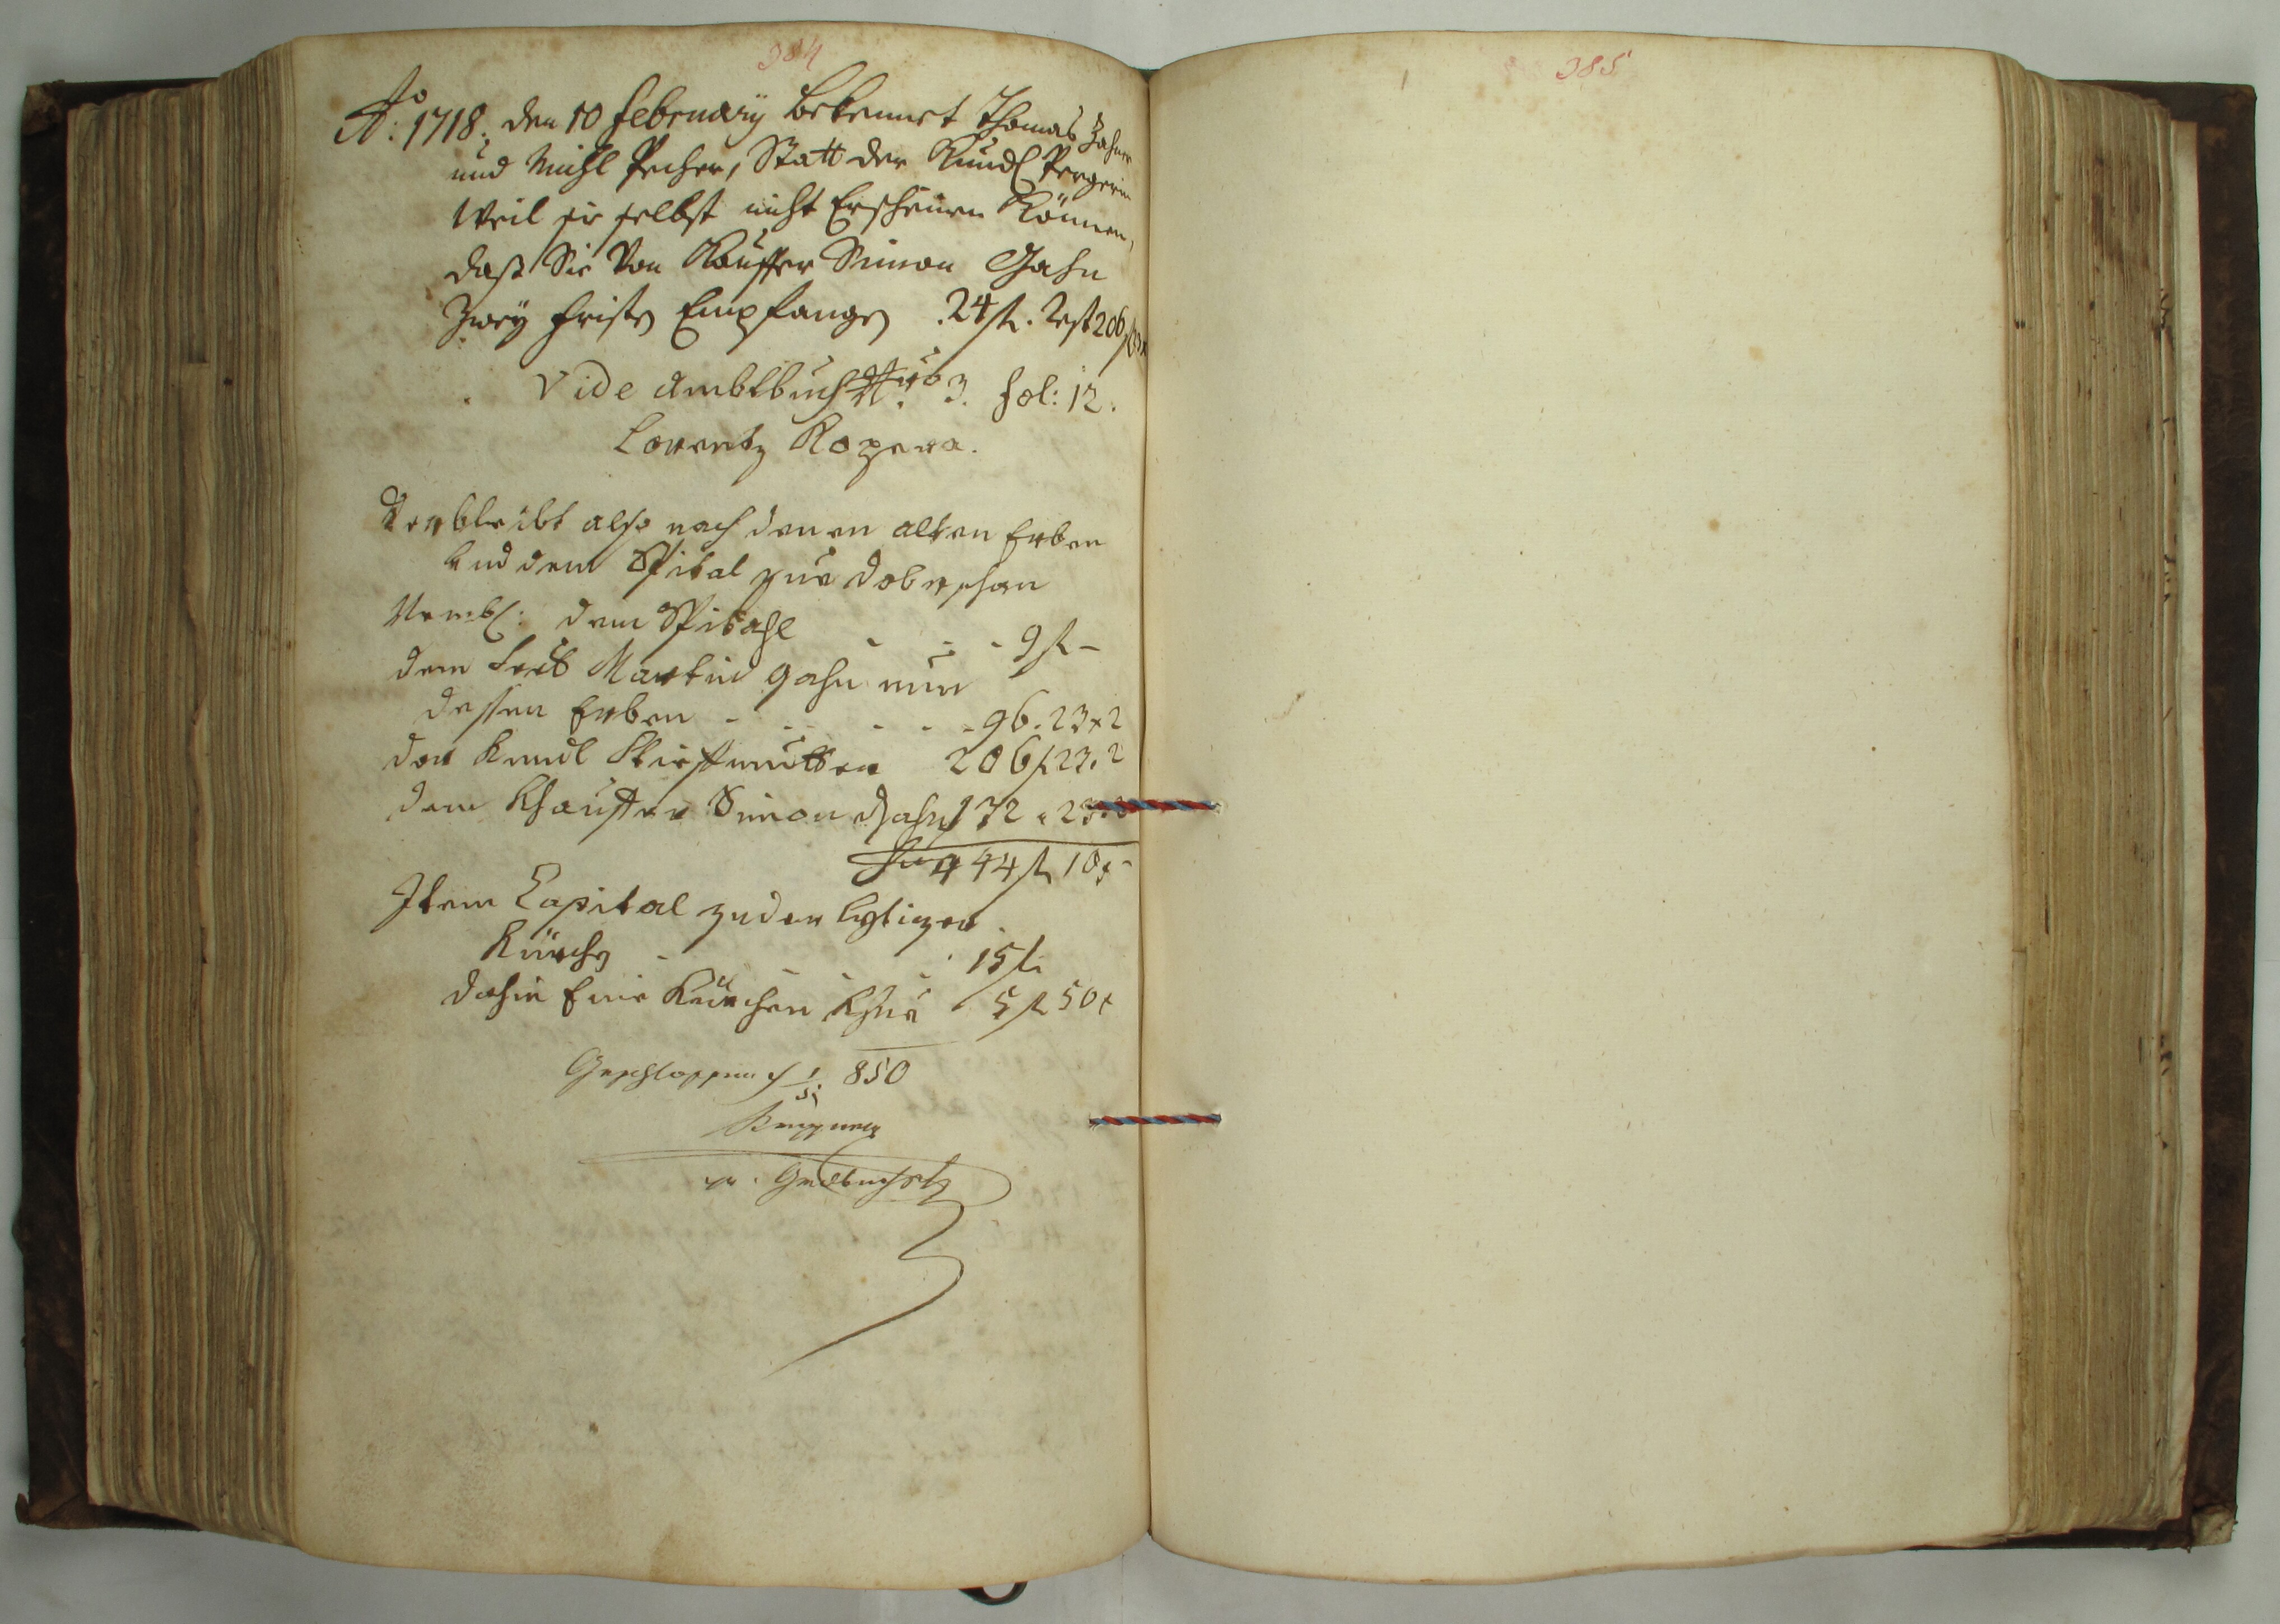 384
Ao: 1718. den 10 February bekennet Thomas Zahner
und Michl Pecher, Statt der Kundl Pergerin
Weil sie selbst nicht Erscheinen Können,
daß Sie Von Kauffer Simon Gahn
Zwey fristen Empfangen .24 fl. Rest 206 fl
Vide Ambtbuch Nro 3. fol: 12.
Lorentz Kozera.
Verbleibt also nach denen alten Erben
und dem Spital zue Dobrzhan
Nembl: dem Spitahl - - - 9 fl -
dem Leib Martin Gahn nun
dessen Erben - - - - 96. 23 x 2
der Kundl Stiefmutter 206 fl 23. 2
dem Khauffer Simon Gahn 132 . 23.
Sua 444 fl 10 x -
Item Capital zu der
Kürchen - - - 15 fl
dahin Eine Kürchen Khue 5 fl 50 x
Geschlossen 850
385